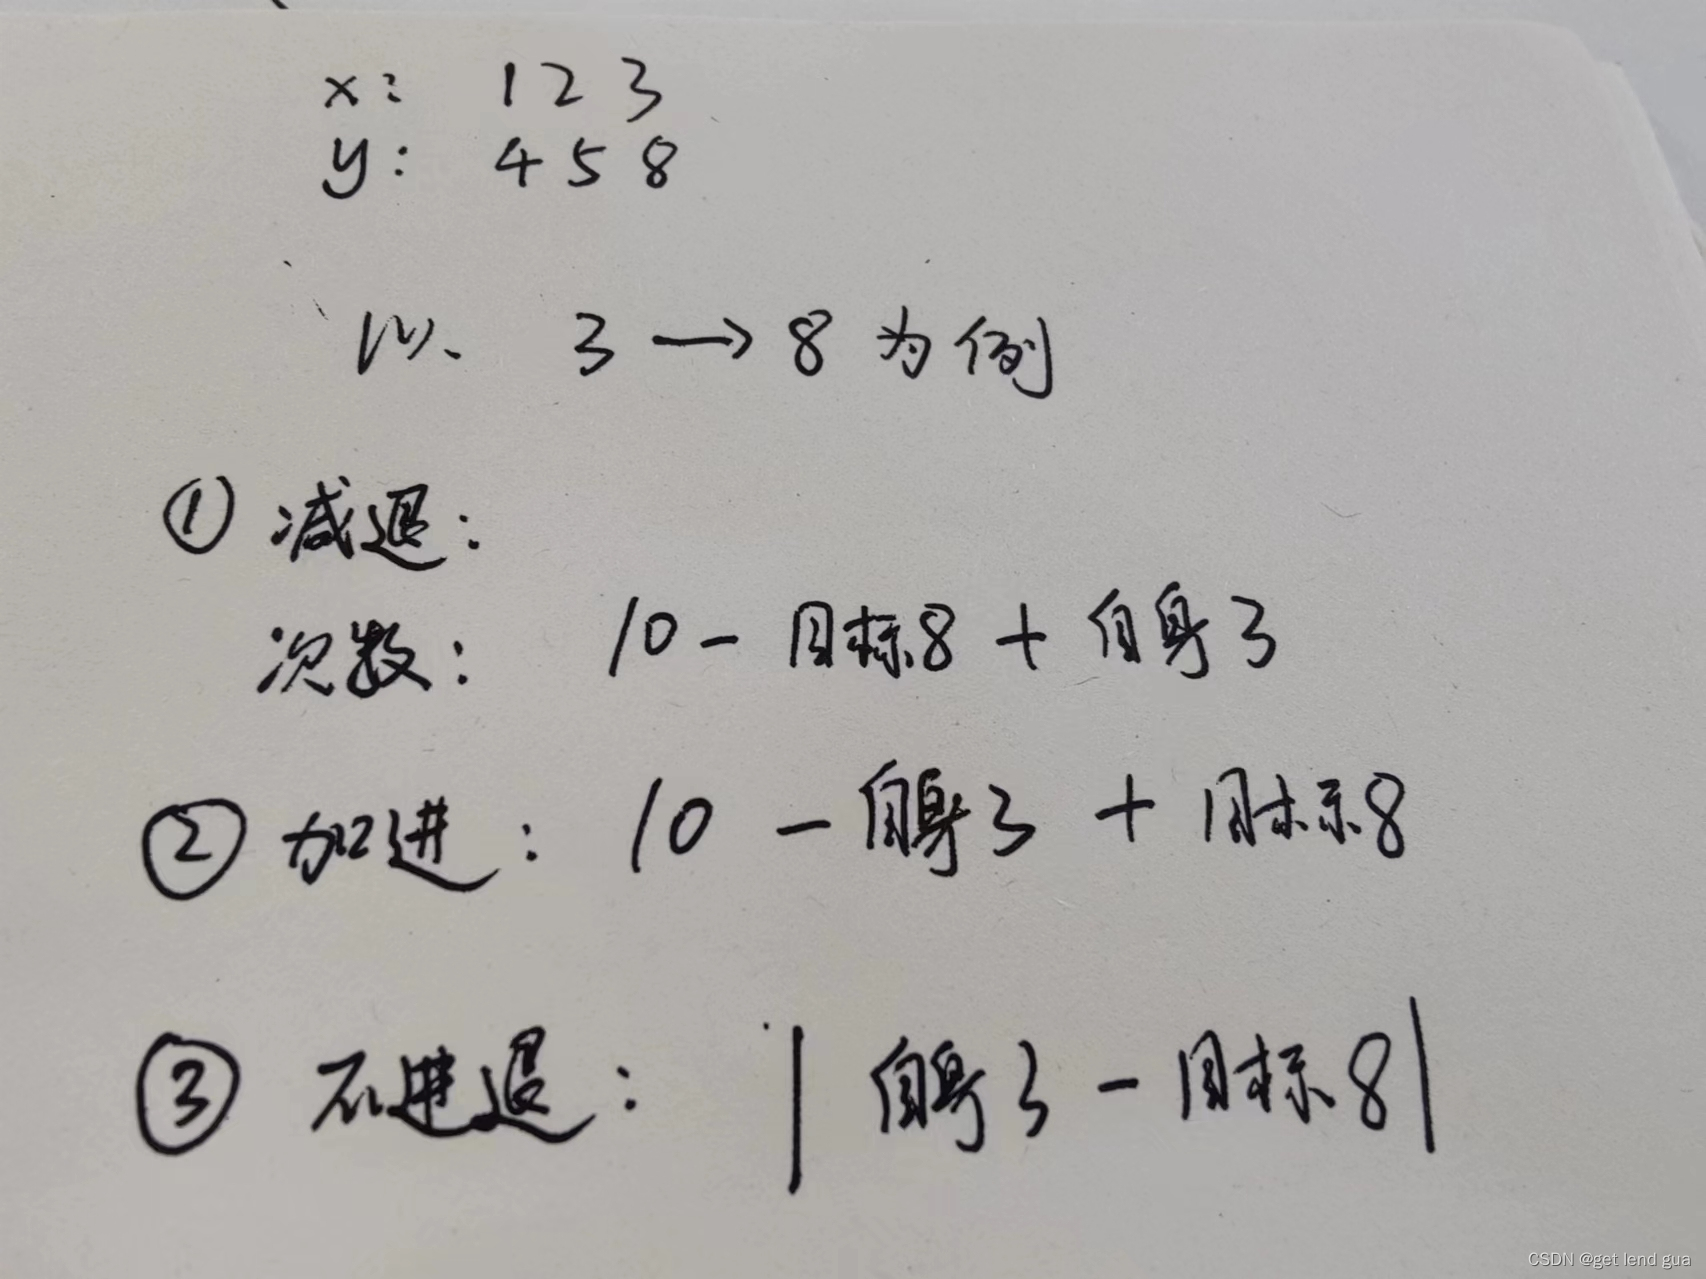 x: 1 2 3
y: 4 5 8
以 3 → 8 为例
① 减退:
次数: 10 - 目标8 + 自身3
② 加进: 10 - 自身3 + 目标8
③ 不进退: | 自身3 - 目标8 |
CSDN @get lend gua